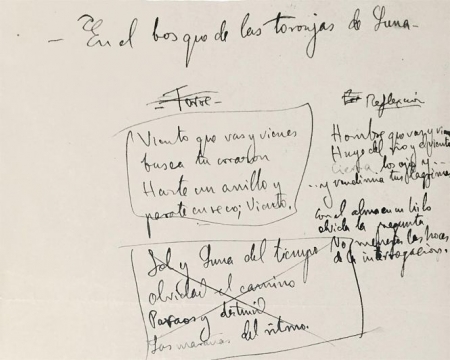 - En el bosque de las toronjas de luna -
Viento que vas y vienes
busca tu corazon
Hazte un anillo y
parate en seco; Viento.
Sol y Luna del tiempo
olvidad el camino
Paraos y
del ritmo.
Reflexión
Hombre que vas y vienes
Huye del rio y el viento
Cierra los ojos y ...
... y vendimia tus lagrimas
con el alma en un hilo
olvida la pregunta
No menees las hoces
de la interrogacion.